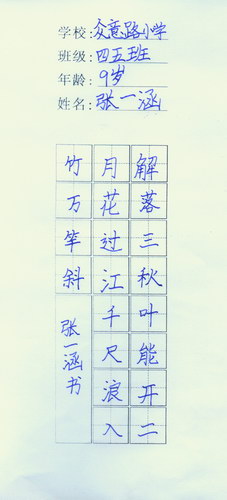 学校:众意路小学
班级:四五班
年龄:9岁
姓名:张一涵
解落三秋叶能开二
月花过江千尺浪入
竹万竿斜
张一涵书